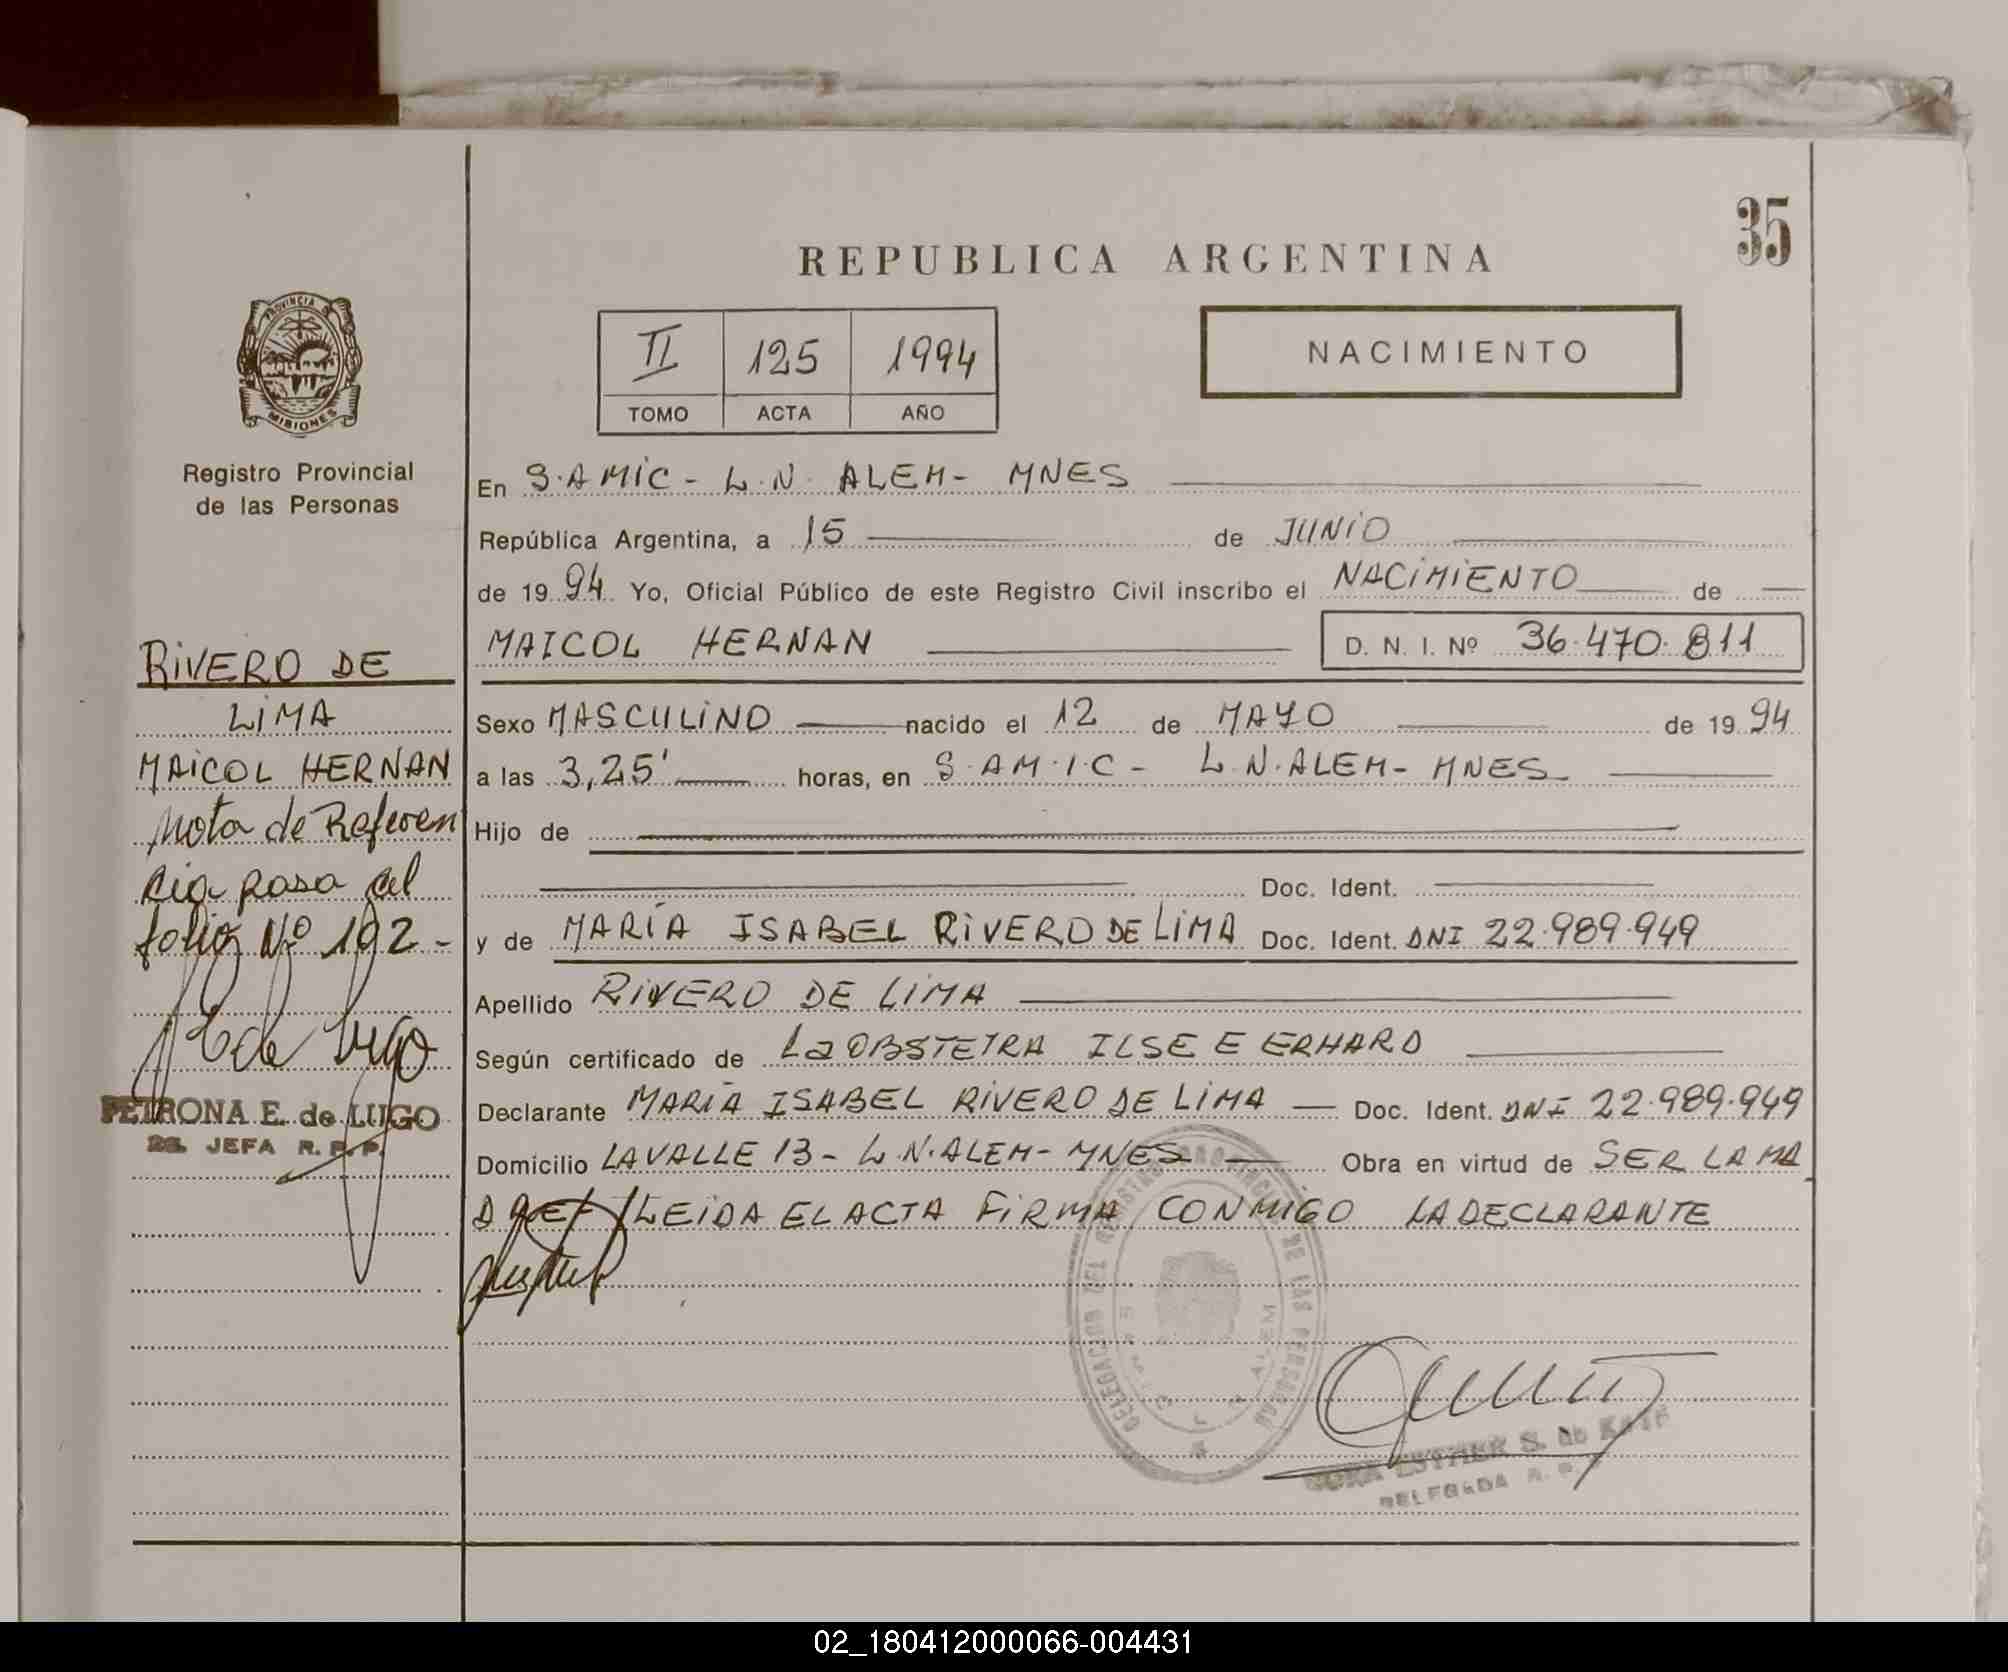 35
REPUBLICA ARGENTINA
II 125 1994
TOMO ACTA AÑO
NACIMIENTO
PROVINCIA DE
MISIONES
Registro Provincial
de las Personas
RIVERO DE
LIMA
MAICOL HERNAN
Nota de Referen
cia pasa al
folio Nº 192 -
E de Lugo
PETRONA E. de LUGO
2a. JEFA R. P. P.
En S.AMIC - L.N. ALEM - MNES
República Argentina, a 15 de JUNIO
de 1994 Yo, Oficial Público de este Registro Civil inscribo el NACIMIENTO de
MAICOL HERNAN D. N. I. Nº 36.470.811
Sexo MASCULINO nacido el 12 de MAYO de 1994
a las 3,25' horas, en S.AM.I.C - L.N.ALEM - MNES
Hijo de
Doc. Ident.
y de MARÍA ISABEL RIVERO DE LIMA Doc. Ident. DNI 22.989.949
Apellido RIVERO DE LIMA
Según certificado de La OBSTETRA ILSE E ERHARD
Declarante MARÍA ISABEL RIVERO DE LIMA Doc. Ident. DNI 22.989.949
Domicilio LAVALLE 13 - L.N.ALEM - MNES Obra en virtud de SER LA MA
DRE/ LEIDA EL ACTA FIRMA CONMIGO LA DECLARANTE
DELEGACION DEL REGISTRO PROVINCIAL DE LAS PERSONAS
ESTHER S. de
DELEGADA R. P.
02_180412000066-004431